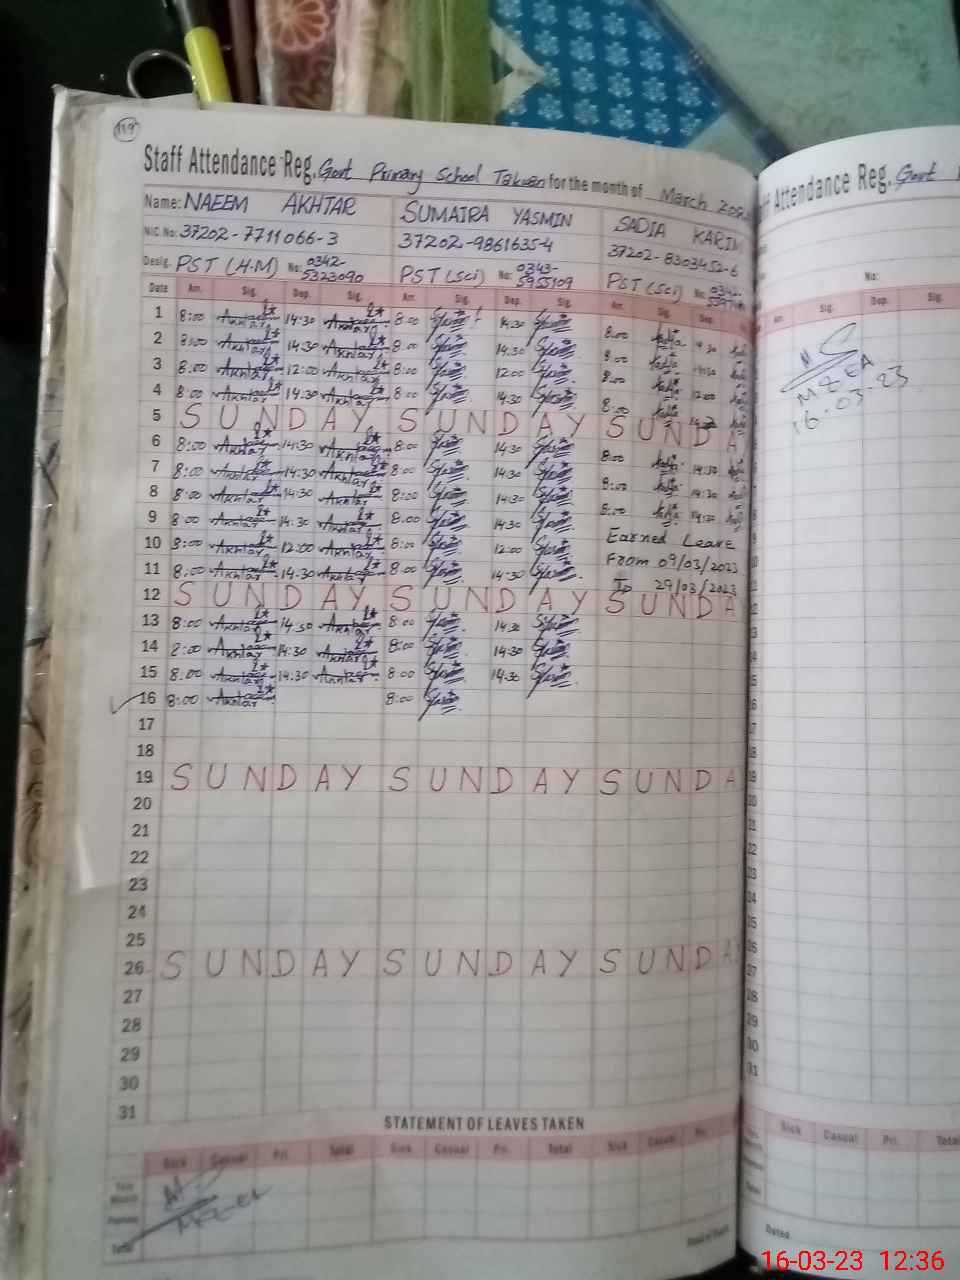 119
Staff Attendance Reg. Govt Primary School Takwan for the month of March
Name: NAEEM AKHTAR SUMAIRA YASMIN SADIA KARIM
NIC.No: 37202-7711066-3 37202-9861635-4 37202-8303452-6
Desig. PST (H.M) No: 0342-5323090 PST (Sci) No: 0343-5955109 PST (Sci) No: 0342-
Date Arr. Sig. Dep. Sig. Arr. Sig. Dep. Sig. Arr. Sig. Dep.
1 8:00 Akhtar 14:30 Akhtar 8:00 14:30 8:00 14:30
2 8:00 Akhtar 14:30 Akhtar 8:00 14:30 8:00
3 8:00 Akhtar 12:00 Akhtar 8:00 12:00 8:00 12:00
4 8:00 Akhtar 14:30 Akhtar 8:00 14:30 8:00
5 SUNDAY SUNDAY SUNDA
6 8:00 Akhtar 14:30 Akhtar 8:00 14:30 8:00 14:30
7 8:00 Akhtar 14:30 Akhtar 8:00 14:30 8:00 14:30
8 8:00 Akhtar 14:30 Akhtar 8:00 14:30 8:00 14:30
9 8:00 Akhtar 14:30 Akhtar 8:00 14:30 Earned Leave
10 8:00 Akhtar 12:00 Akhtar 8:00 12:00 From 09/03/2023
11 8:00 Akhtar 14:30 Akhtar 8:00 14:30 To 29/03/2023
12 SUNDAY SUNDAY SUNDA
13 8:00 Akhtar 14:30 Akhtar 8:00 14:30
14 8:00 Akhtar 14:30 Akhtar 8:00 14:30
15 8:00 Akhtar 14:30 Akhtar 8:00 14:30
16 8:00 Akhtar 8:00
17
18
19 SUNDAY SUNDAY SUNDA
20
21
22
23
24
25
26 SUNDAY SUNDAY SUNDA
27
28
29
30
31
STATEMENT OF LEAVES TAKEN
Sick Casual Pri. Total Sick Casual Pri. Total Sick Casual Pri.
This Month
Total
Attendance Reg. Govt
No:
Sig. Dep. Sig.
MEEA
16.03.23
Sick Casual Pri. Total
Dated
16-03-23 12:36